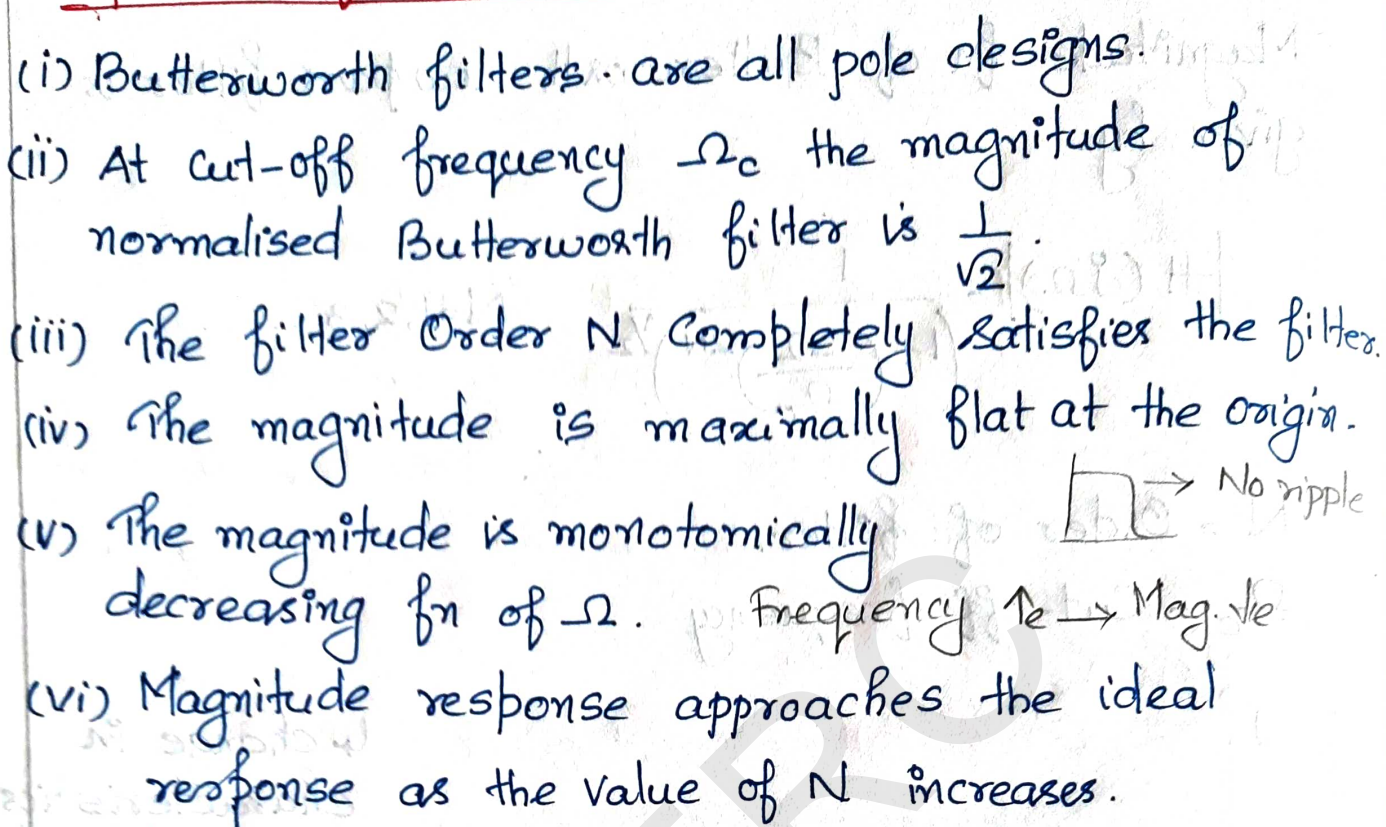 (i) Butterworth filters. are all pole designs.
(ii) At cut-off frequency Ωc the magnitude of
normalised Butterworth filter is 1/√2.
(iii) The filter Order N Completely satisfies the filter.
(iv) The magnitude is maximally flat at the origin.
→ No ripple
(v) The magnitude is monotomically
decreasing fn of Ω. Frequency ↑e → Mag. ↓e
(vi) Magnitude response approaches the ideal
response as the value of N increases.